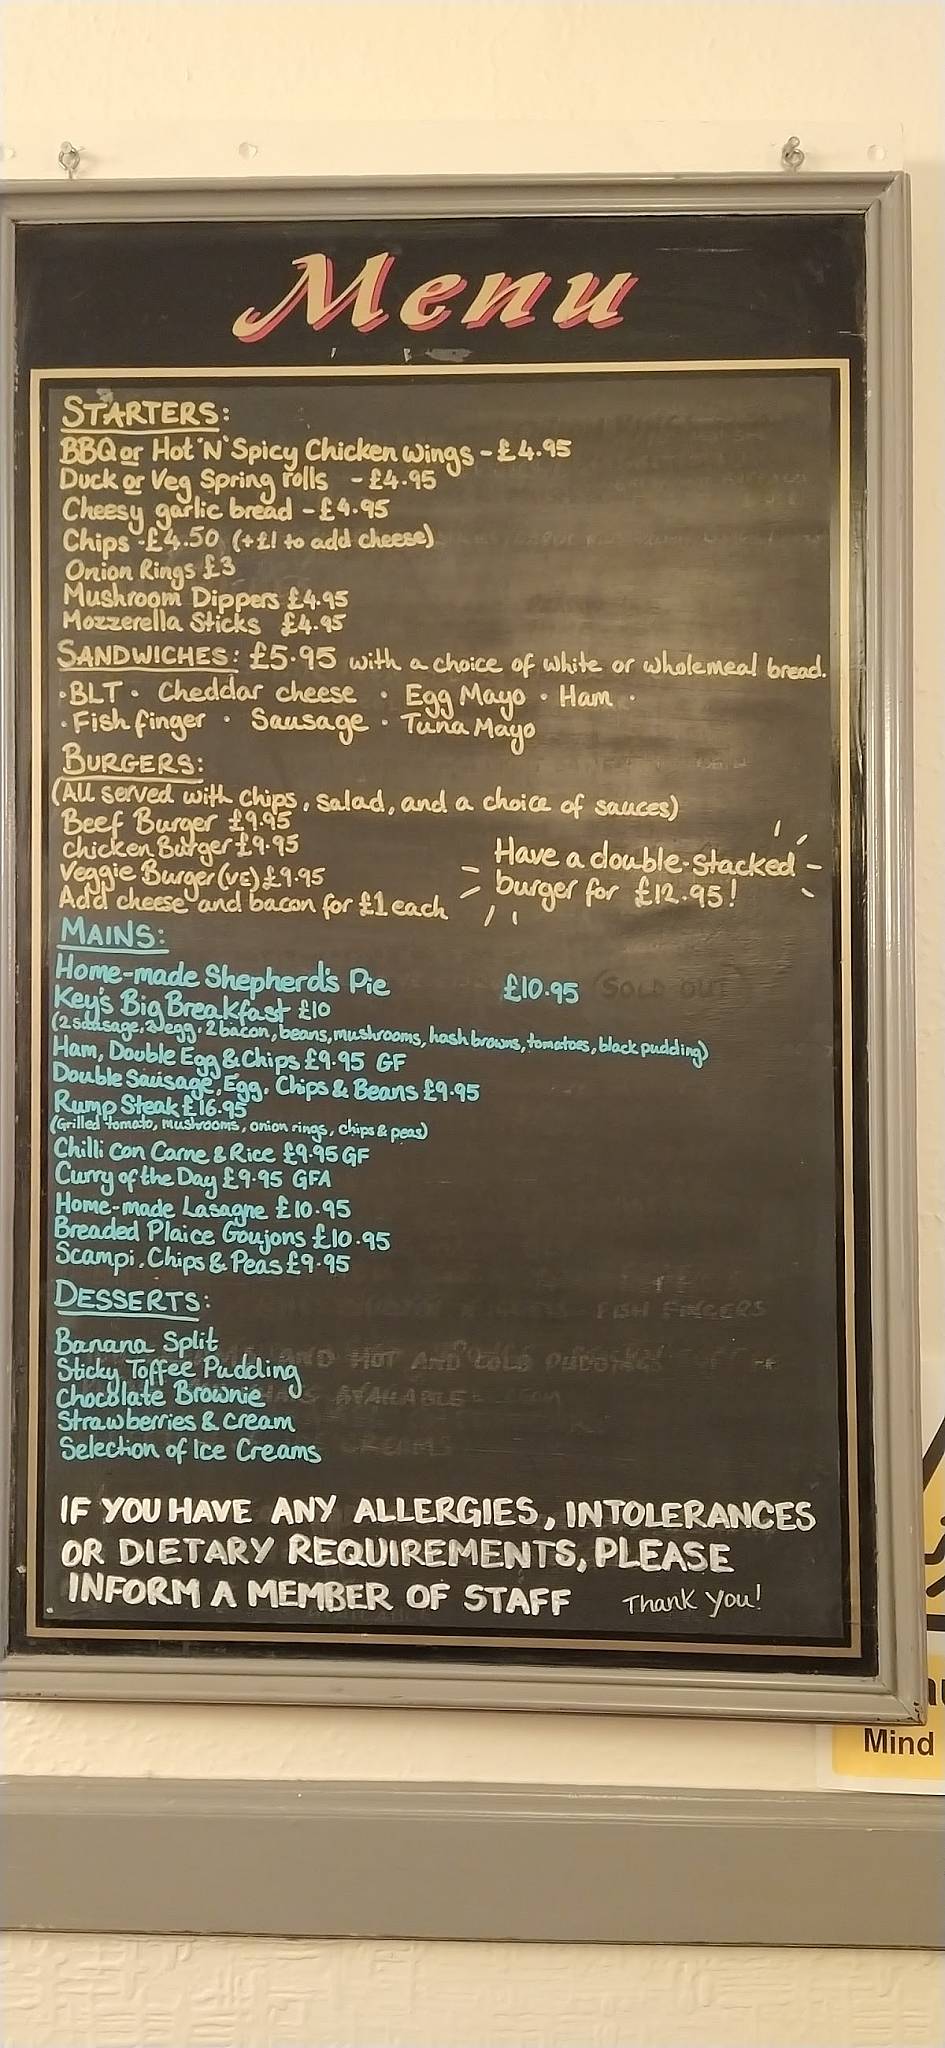 Menu
STARTERS:
BBQ or Hot 'N' Spicy Chicken wings - £4.95
Duck or Veg Spring rolls - £4.95
Cheesy garlic bread - £4.95
Chips - £4.50 (+£1 to add cheese)
Onion Rings £3
Mushroom Dippers £4.95
Mozzerella Sticks £4.95
SANDWICHES: £5.95 with a choice of white or wholemeal bread.
· BLT · Cheddar cheese · Egg Mayo · Ham ·
· Fish finger · Sausage · Tuna Mayo
BURGERS:
(All served with chips, salad, and a choice of sauces)
Beef Burger £9.95
Chicken Burger £9.95
Veggie Burger (VE) £9.95
Add cheese and bacon for £1 each
Have a double-stacked
burger for £12.95!
MAINS:
Home-made Shepherd's Pie £10.95 (SOLD OUT
Key's Big Breakfast £10
(2 sausage, 2 egg, 2 bacon, beans, mushrooms, hash browns, tomatoes, black pudding)
Ham, Double Egg & Chips £9.95 GF
Double Sausage, Egg, Chips & Beans £9.95
Rump Steak £16.95
(Grilled tomato, mushrooms, onion rings, chips & peas)
Chilli con Carne & Rice £9.95 GF
Curry of the Day £9.95 GFA
Home-made Lasagne £10.95
Breaded Plaice Goujons £10.95
Scampi, Chips & Peas £9.95
DESSERTS:
FISH FINGERS
Banana Split
AND HOT AND COLD PUDDINGS
Sticky Toffee Pudding
Chocolate Brownie
AVAILABLE
Strawberries & cream
Selection of Ice Creams
CREAMS
IF YOU HAVE ANY ALLERGIES, INTOLERANCES
OR DIETARY REQUIREMENTS, PLEASE
INFORM A MEMBER OF STAFF Thank you!
Mind